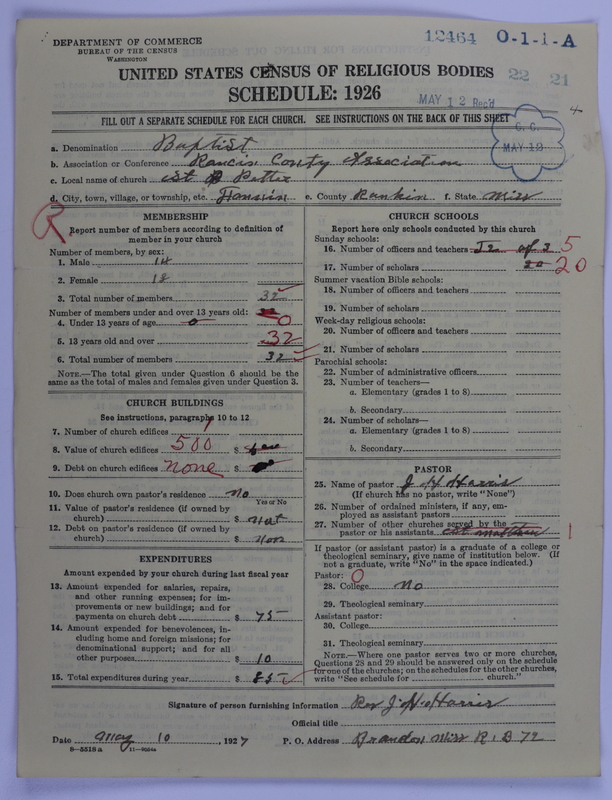 12464 O-1-1-A
DEPARTMENT OF COMMERCE
BUREAU OF THE CENSUS
WASHINGTON
UNITED STATES CENSUS OF RELIGIOUS BODIES
22 21
SCHEDULE: 1926
MAY 12 Rec'd
FILL OUT A SEPARATE SCHEDULE FOR EACH CHURCH. SEE INSTRUCTIONS ON THE BACK OF THIS SHEET
C. C.
MAY 12
a. Denomination Baptist
b. Association or Conference Rancin County Association
c. Local name of church 1st Petter
d. City, town, village, or township, etc. e. County Rankin f. State Miss
R
MEMBERSHIP
Report number of members according to definition of
member in your church
Number of members, by sex:
1. Male 14
2. Female 18
3. Total number of members 32
Number of members under and over 13 years old:
4. Under 13 years of age 0 0
5. 13 years old and over 32
6. Total number of members 32
NOTE.—The total given under Question 6 should be
same as the total of males and females given under Question 3.
CHURCH BUILDINGS
See instructions, paragraphs 10 to 12
7. Number of church edifices 1
8. Value of church edifices 500 $
9. Debt on church edifices none $
10. Does church own pastor's residence no
Yes or No
11. Value of pastor's residence (if owned by
church) $ not
12. Debt on pastor's residence (if owned by
church) $ non
EXPENDITURES
Amount expended by your church during last fiscal year
13. Amount expended for salaries, repairs,
and other running expenses; for im-
provements or new buildings; and for
payments on church debt $ 75
14. Amount expended for benevolences, in-
cluding home and foreign missions; for
denominational support; and for all
other purposes $ 10
15. Total expenditures during year $ 85
CHURCH SCHOOLS
Report here only schools conducted by this church
Sunday schools:
16. Number of officers and teachers 5
17. Number of scholars 20 20
Summer vacation Bible schools:
18. Number of officers and teachers
19. Number of scholars
Week-day religious schools:
20. Number of officers and teachers
21. Number of scholars
Parochial schools:
22. Number of administrative officers
23. Number of teachers—
a. Elementary (grades 1 to 8)
b. Secondary
24. Number of scholars—
a. Elementary (grades 1 to 8)
b. Secondary
PASTOR
25. Name of pastor J H Harris
(If church has no pastor, write "None")
26. Number of ordained ministers, if any, em-
ployed as assistant pastors
27. Number of other churches served by the
pastor or his assistants 1
If pastor (or assistant pastor) is a graduate of a college or
theological seminary, give name of institution below. (If
not a graduate, write "No" in the space indicated.)
Pastor: 0
28. College No
29. Theological seminary
Assistant pastor:
30. College
31. Theological seminary
NOTE.—Where one pastor serves two or more churches,
Questions 28 and 29 should be answered only on the schedule
for one of the churches; on the schedules for the other churches,
write "See schedule for church."
Signature of person furnishing information Rev J H Harris
Official title
Date May 10, 1927 P. O. Address Brandon Miss R. D 72
8-5518a